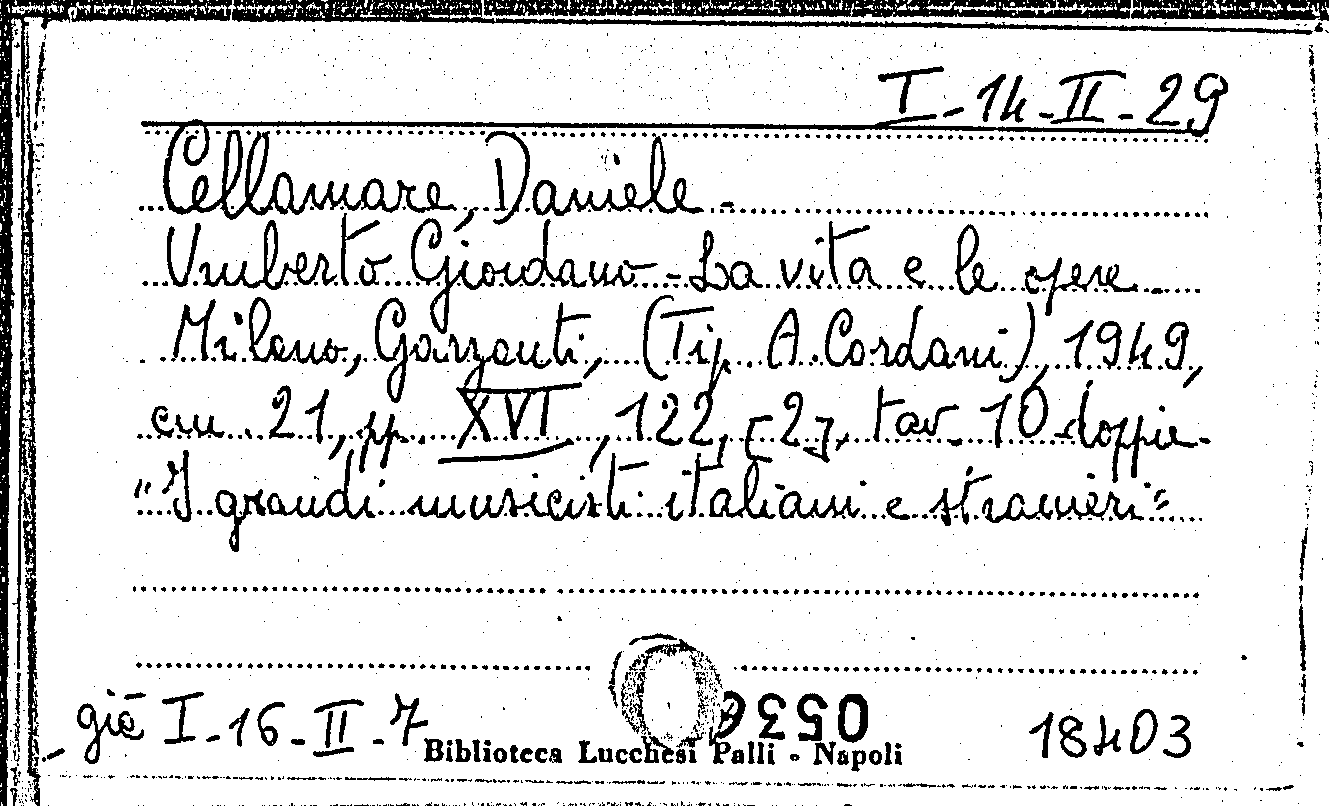 I-14-II-29
Cellamare, Daniele -
Umberto Giordano - La vita e le opere -
Milano, Garzanti, (Tip. A. Cordani), 1949,
cm. 21, pp. XVI, 122, [2], tav. 10 doppie -
"I grandi musicisti italiani e stranieri"
già I-16-II-7
18403
Biblioteca Lucchesi Palli - Napoli